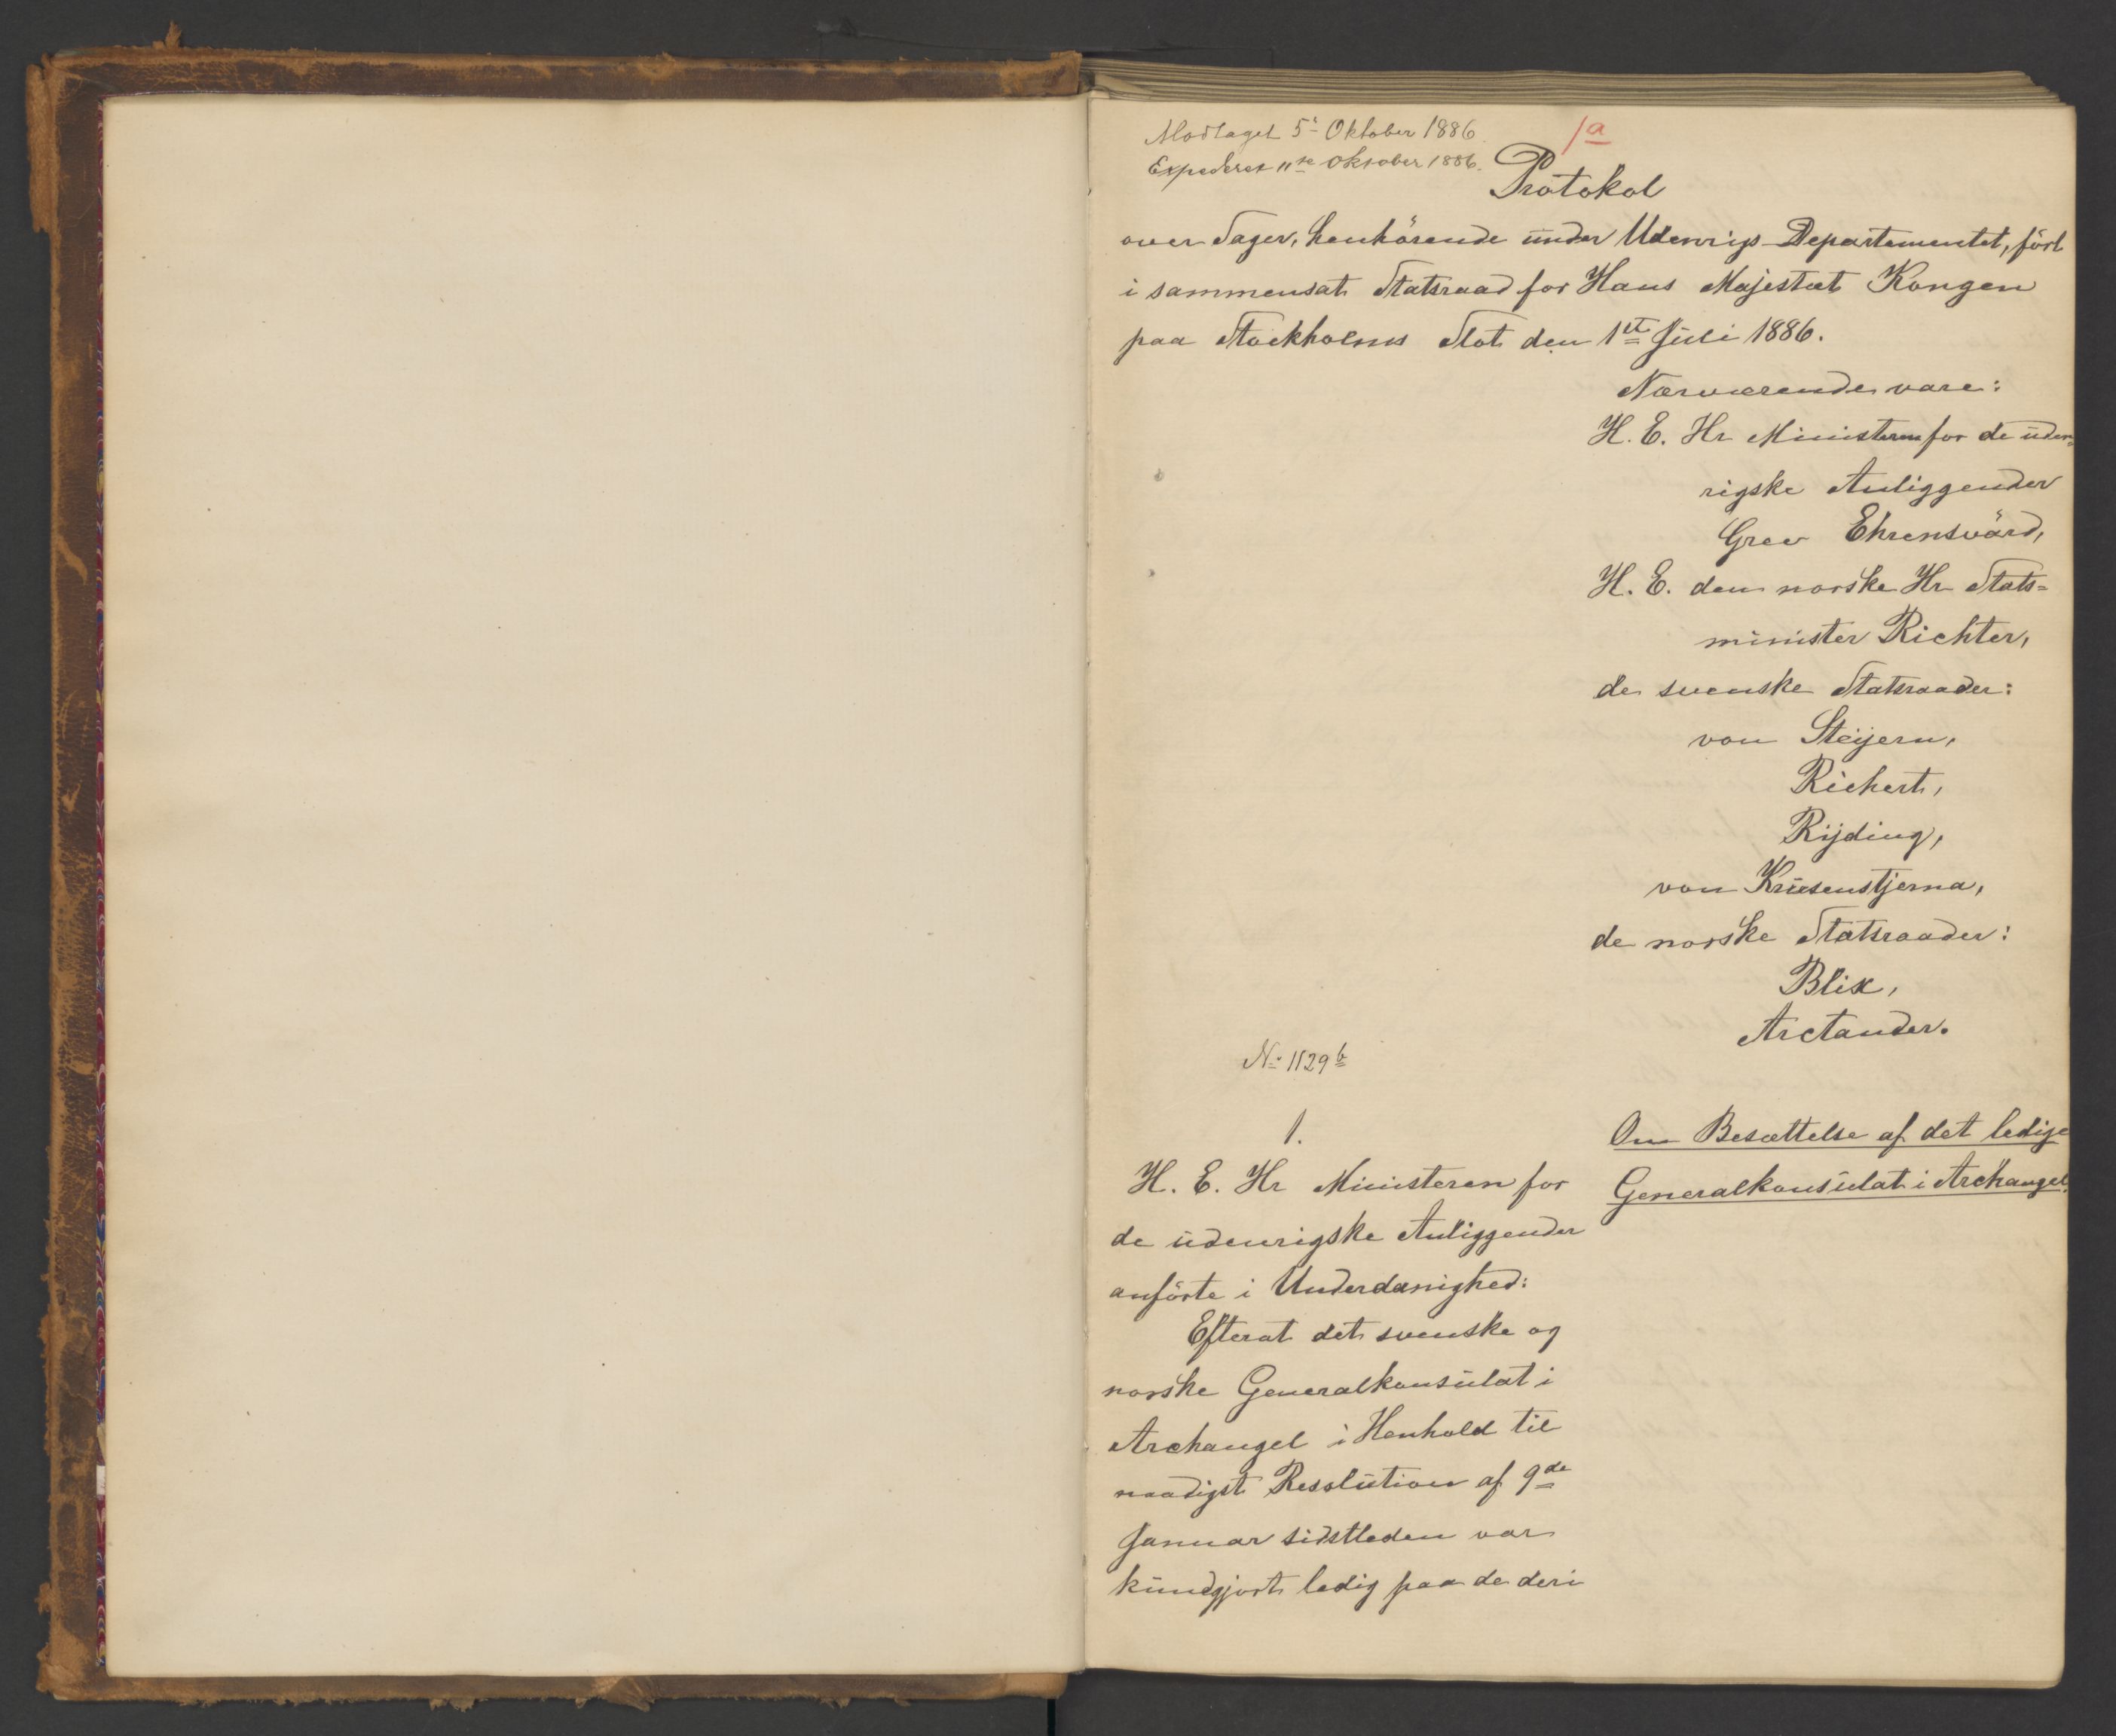 Modtaget 5' Oktober 1886.
Expederet 11te Oktober 1886.
1a
Protokol
over Sager, henhörende under Udenrigs-Departementet, fört
i sammensat Statsraad for Hans Majestæt Kongen
paa Stockholms Slot den 1ste Juli 1886.
Nærværende vare:
H. E. Hr Ministeren for de uden-
rigske Anliggender
Grev Ehrensvärd,
H. E. den norske Hr Stats=
minister Richter,
de svenske Statsraader:
von Steijern,
Richert,
Rijding,
von Krusenstjerna,
de norske Statsraader:
Blix,
Arctander.
No 1129 b
1.
Om Besættelse af det ledige
Generalkonsulat i Archangel.
H. E. Hr Ministeren for
de udenrigske Anliggender
anförte i Underdanighed:
Efterat det svenske og
norske Generalkonsulat i
Archangel i Henhold til
naadigst Resolution af 9de
Januar sidstleden var
kundgjort ledig paa de deri